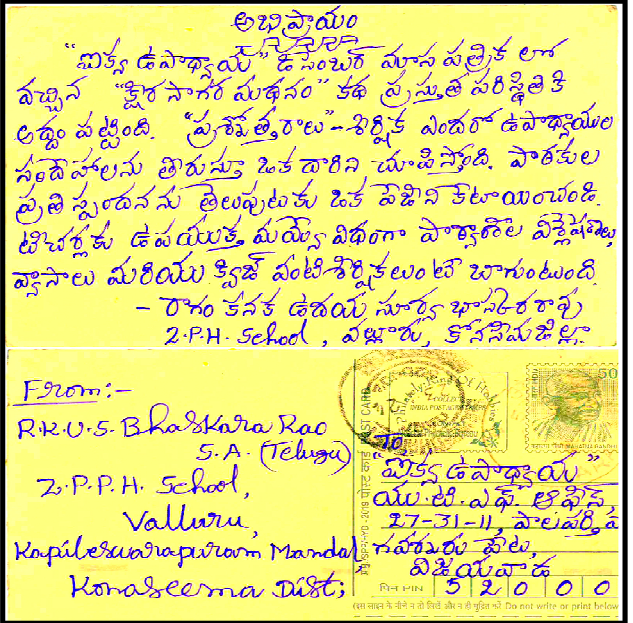 అభిప్రాయం
"ఐక్య ఉపాధ్యాయ" డిసెంబర్ మాస పత్రిక లో
వచ్చిన "క్షీర సాగర మథనం" కథ ప్రస్తుత పరిస్థితికి
అద్దం పట్టింది. "ప్రశ్నోత్తరాలు" - శీర్షిక ఎందరో ఉపాధ్యాయుల
సందేహాలను తీరుస్తూ ఒక దారిని చూపిస్తోంది. పాఠకుల
ప్రతి స్పందనను తెలుపుటకు ఒక పేజీని కేటాయించండి.
టీచర్లకు ఉపయుక్త మయ్యే విధంగా పాఠ్యాంశాల విశ్లేషణలు,
వ్యాసాలు మరియు క్విజ్ వంటి శీర్షికలుంటే బాగుంటుంది.
- రాగం కనక ఉదయ సూర్య భాస్కరరావు
Z.P.H. School, వల్లూరు, కోనసీమజిల్లా.
From:-
R.K.U.S. Bhaskara Rao
S.A. (Telugu)
Z.P.P.H. School,
Valluru,
Kapileswarapuram Mandal
Konaseema Dist;
POST CARD
50
To,
"ఐక్య ఉపాధ్యాయ"
యు.టి.ఎఫ్. ఆఫీస్,
27-31-11,
విజయవాడ
पिन PIN 5 2 0 0 0
इस लाइन के नीचे न तो लिखें और न ही मुद्रित करें Do not write or print below